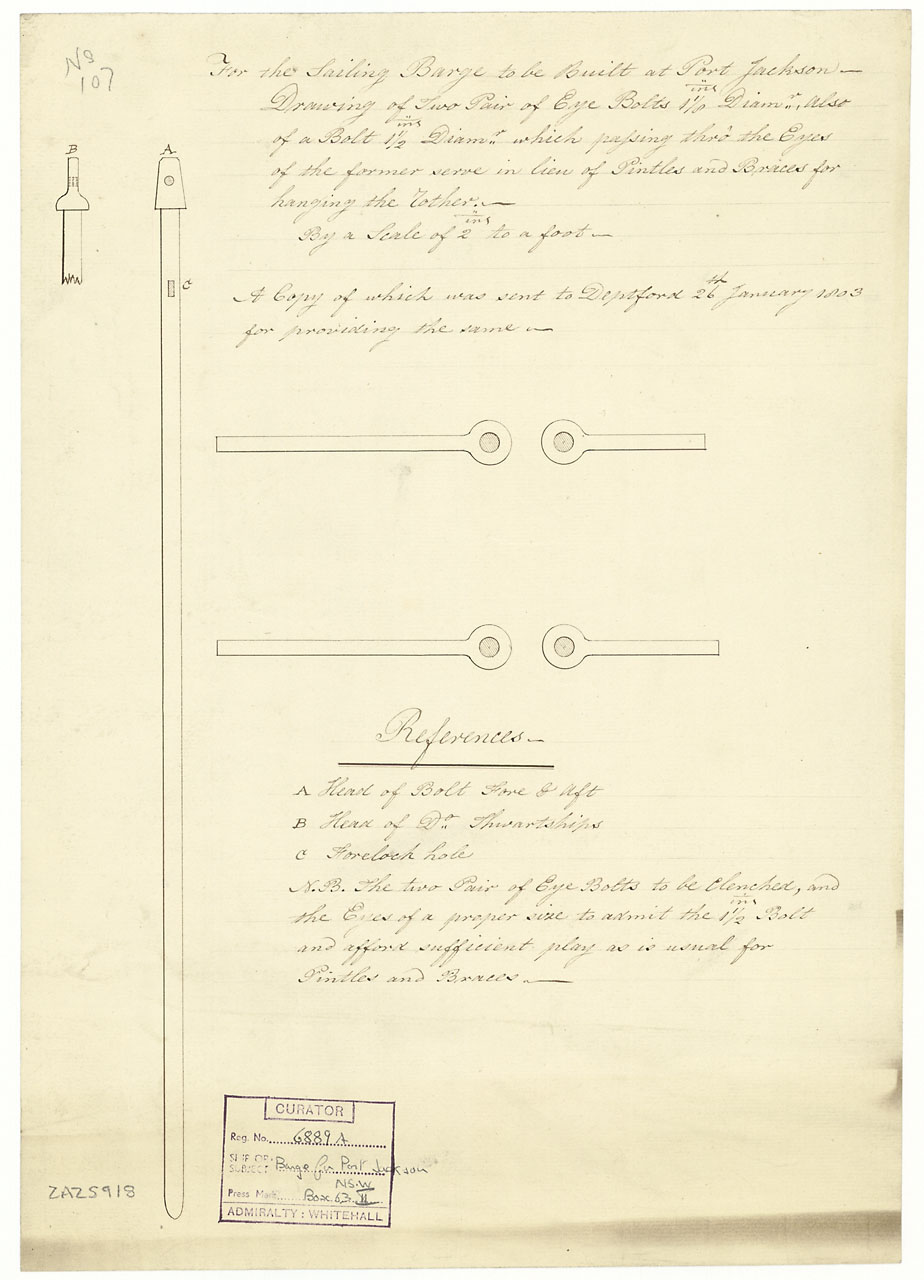 No
107
For the Sailing Barge to be Built at Port Jackson —
Drawing of Two Pair of Eye Bolts 1 1/8 ins Diamr., Also
of a Bolt 1 1/2 ins Diamr. which passing thro' the Eyes
of the former serve in lieu of Pintles and Braces for
hanging the Rother. —
By a Scale of 2 ins to a foot —
A Copy of which was sent to Deptford 26th January 1803
for providing the same —
B
A
C
References —
A Head of Bolt Fore & Aft
B Head of Do. Thwartships
C Forelock hole
N.B. The two Pair of Eye Bolts to be Clenched, and
the Eyes of a proper size to admit the 1 1/2 ins Bolt
and afford sufficient play as is usual for
Pintles and Braces. —
CURATOR
Reg. No. 6889 A
SHIP OR
SUBJECT Barge for Port Jackson
N.S.W
Press Mark Box 63 II
ADMIRALTY: WHITEHALL
ZAZ5918